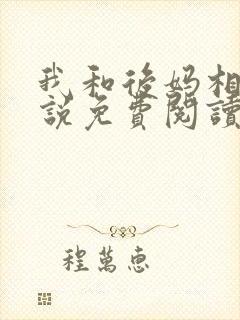 我和後妈相
說免費閱讀
程萬惠